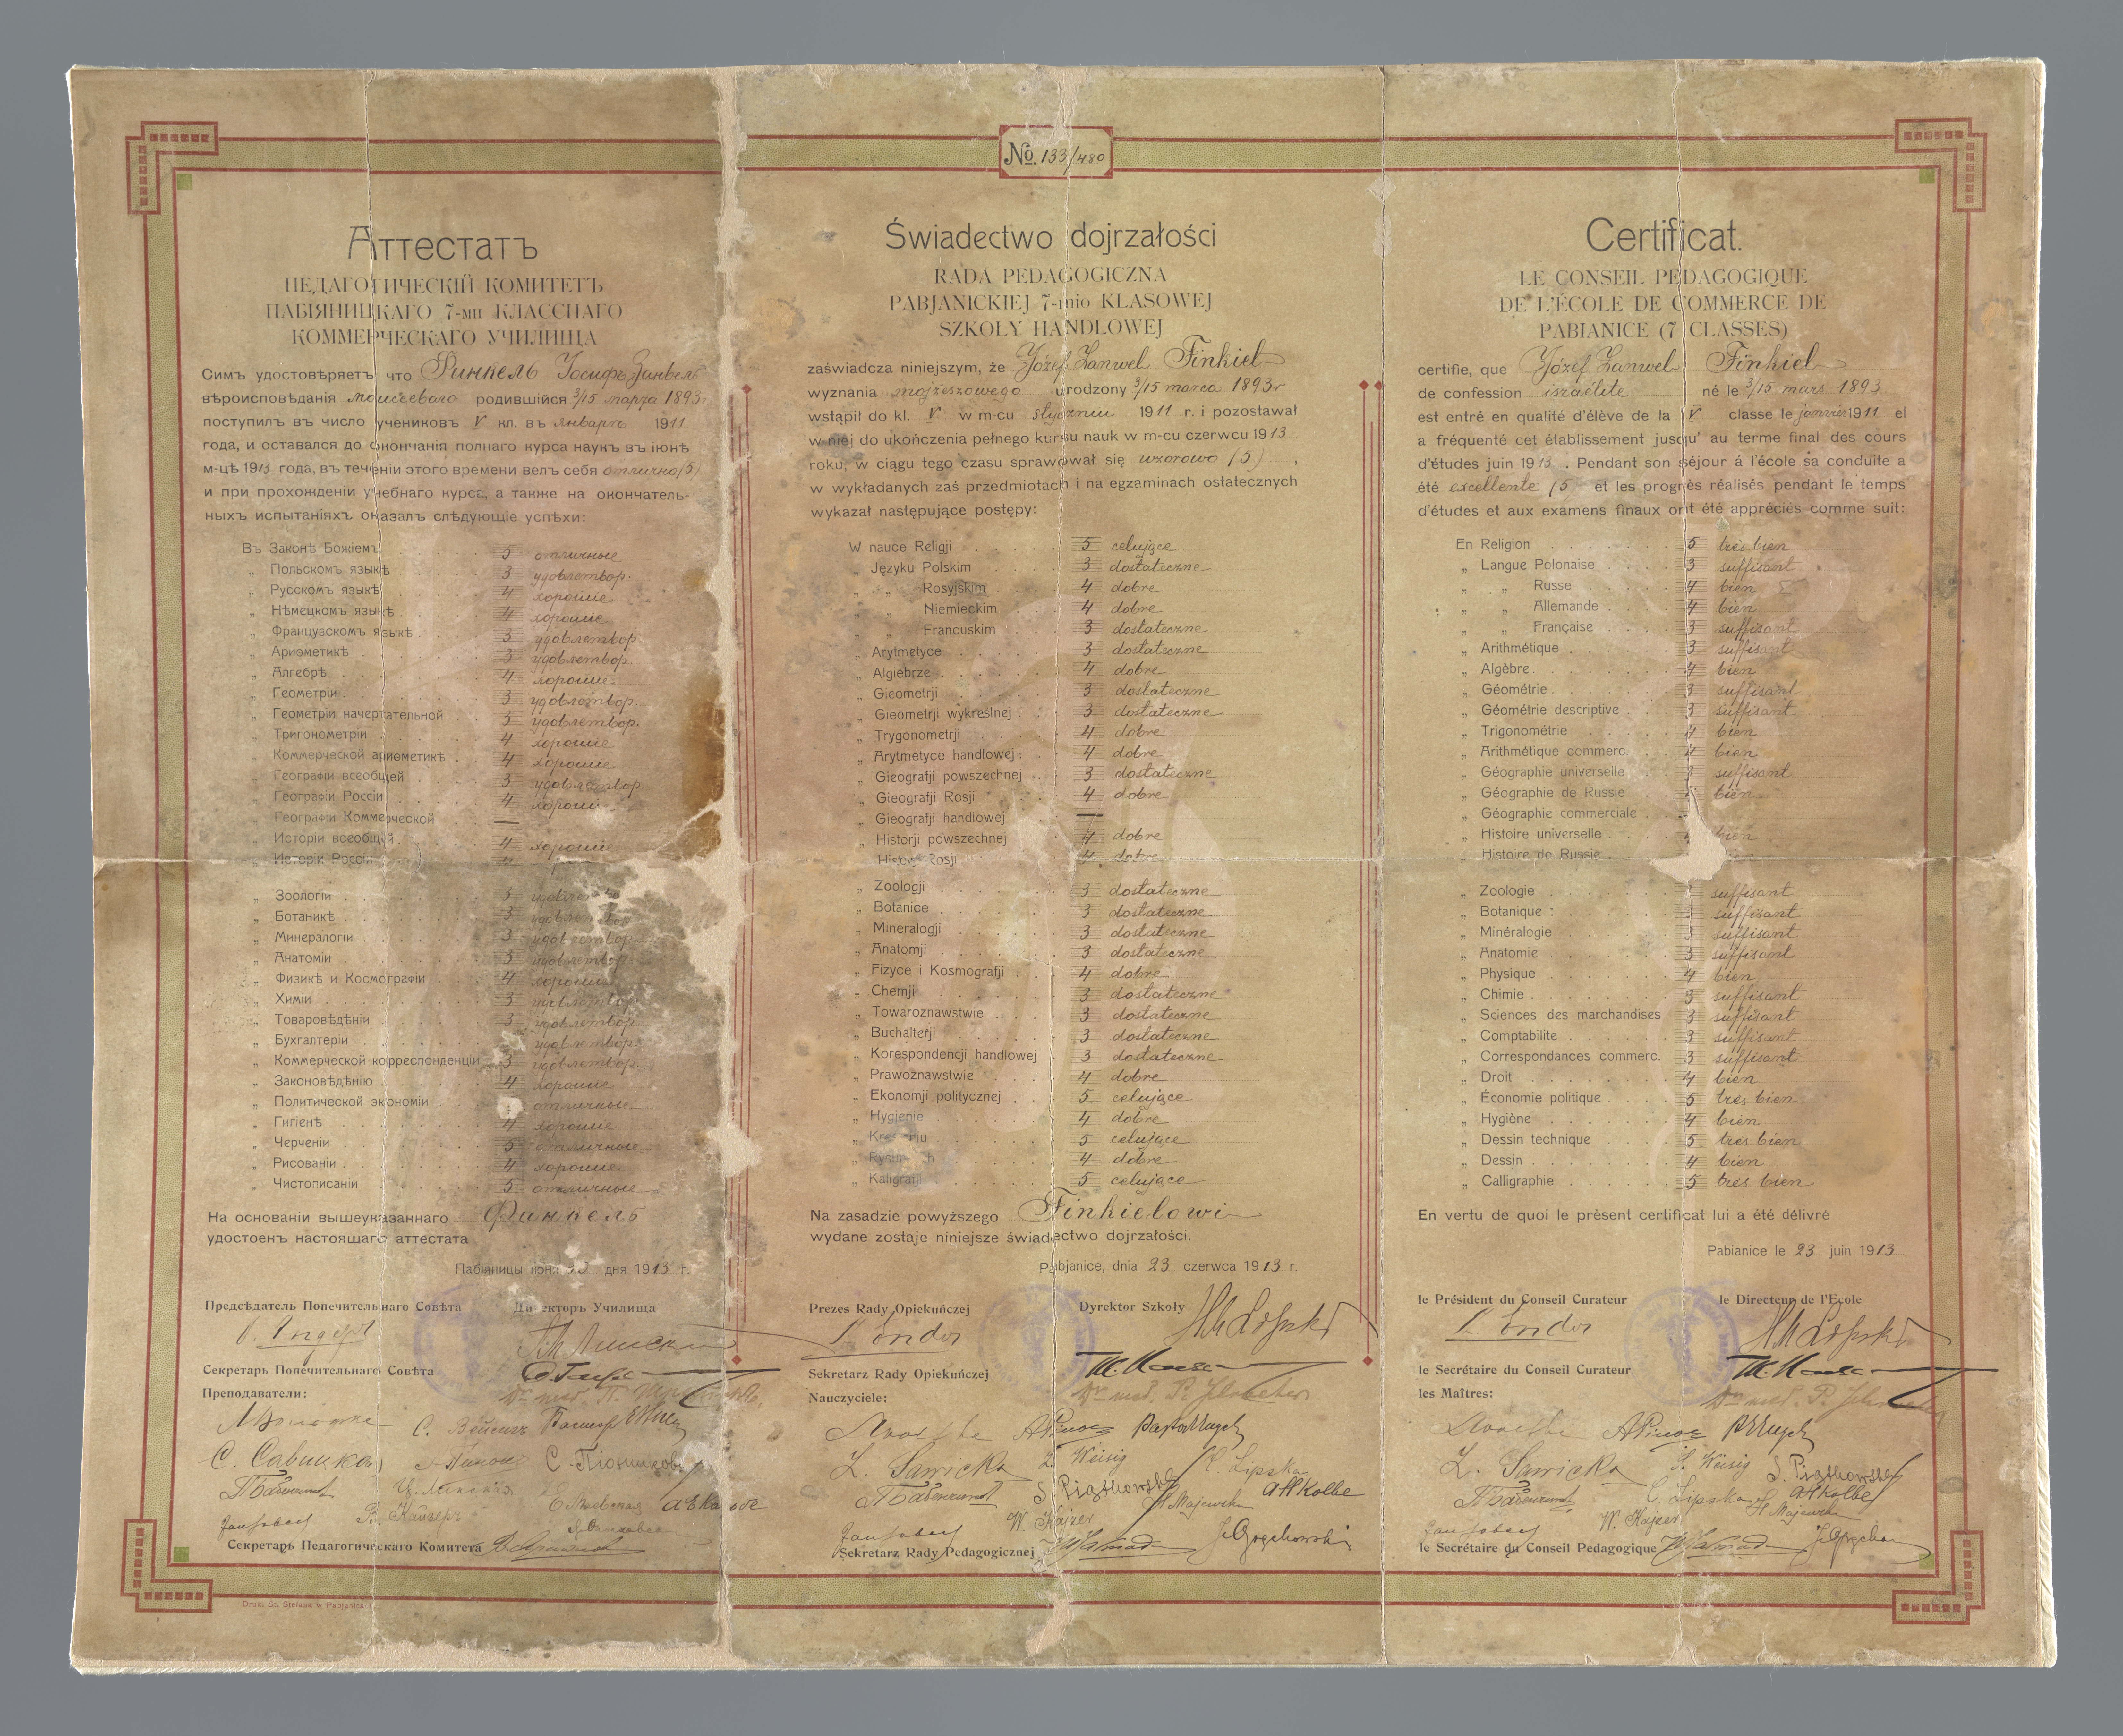 No. 133/480
Аттестатъ
ПЕДАГОГИЧЕСКІЙ КОМИТЕТЪ
ПАБІЯНИЦКАГО 7-ми КЛАССНАГО
КОММЕРЧЕСКАГО УЧИЛИЩА
Симъ удостовѣряетъ что Финкель Іосифъ Занвель
вѣроисповѣданія моисеевого родившійся 3/15 марта 1893
поступилъ въ число учениковъ V кл. въ январѣ 1911
года, и оставался до окончанія полнаго курса наукъ въ іюнѣ
м-цѣ 1913 года, въ теченіи этого времени велъ себя отлично (5)
и при прохожденіи учебнаго курса, а также на окончатель-
ныхъ испытаніяхъ оказалъ слѣдующіе успѣхи:
Въ Законѣ Божіемъ 5 отличные
„ Польскомъ языкѣ 3 удовлетвор.
„ Русскомъ языкѣ 4 хорошіе
„ Нѣмецкомъ языкѣ 4 хорошіе
„ Французскомъ языкѣ 3 удовлетвор.
„ Ариѳметикѣ 3 удовлетвор.
„ Алгебрѣ 4 хорошіе
„ Геометріи 3 удовлетвор.
„ Геометріи начертательной 3 удовлетвор.
„ Тригонометріи 4 хорошіе
„ Коммерческой ариѳметикѣ 4 хорошіе
„ Географіи всеобщей 3 удовлетвор.
„ Географіи Россіи 4 хорошіе
„ Географіи Коммерческой —
„ Исторіи всеобщей 4 хорошіе
„ Исторіи Россіи
„ Зоологіи 3 удовлетвор.
„ Ботаникѣ 3 удовлетвор.
„ Минералогіи 3 удовлетвор.
„ Анатоміи 3 удовлетвор.
„ Физикѣ и Космографіи 4 хорошіе
„ Химіи 3 удовлетвор.
„ Товаровѣдѣніи 3 удовлетвор.
„ Бухгалтеріи удовлетвор.
„ Коммерческой корреспонденціи 3 удовлетвор.
„ Законовѣдѣнію 4 хорошіе
„ Политической экономіи отличные
„ Гигіенѣ 4 хорошіе
„ Черченіи 5 отличные
„ Рисованіи 4 хорошіе
„ Чистописаніи 5 отличные
На основаніи вышеуказаннаго Финкель
удостоенъ настоящаго аттестата
Пабіяницы іюня дня 1913 г.
Предсѣдатель Попечительнаго Совѣта Директоръ Училища
Секретарь Попечительнаго Совѣта
Преподаватели:
С. Савицкая
Секретарь Педагогическаго Комитета
Druk. Sz. Stefana w Pabjanicach
Świadectwo dojrzałości
RADA PEDAGOGICZNA
PABJANICKIEJ 7-mio KLASOWEJ
SZKOŁY HANDLOWEJ
zaświadcza niniejszym, że Józef Zanwel Finkiel
wyznania mojżeszowego urodzony 3/15 marca 1893 r
wstąpił do kl. V w m-cu styczniu 1911 r. i pozostawał
w niej do ukończenia pełnego kursu nauk w m-cu czerwcu 1913
roku, w ciągu tego czasu sprawował się wzorowo (5) ,
w wykładanych zaś przedmiotach i na egzaminach ostatecznych
wykazał następujące postępy:
W nauce Religji 5 celujące
„ Języku Polskim 3 dostateczne
„ „ Rosyjskim 4 dobre
„ „ Niemieckim 4 dobre
„ „ Francuskim 3 dostateczne
„ Arytmetyce 3 dostateczne
„ Algiebrze 4 dobre
„ Gieometrji 3 dostateczne
„ Gieometrji wykreślnej 3 dostateczne
„ Trygonometrji 4 dobre
„ Arytmetyce handlowej 4 dobre
„ Gieografji powszechnej 3 dostateczne
„ Gieografji Rosji 4 dobre
„ Gieografji handlowej —
„ Historji powszechnej 4 dobre
Historji Rosji 4 dobre
„ Zoologji 3 dostateczne
„ Botanice 3 dostateczne
„ Mineralogji 3 dostateczne
„ Anatomji 3 dostateczne
„ Fizyce i Kosmografji 4 dobre
„ Chemji 3 dostateczne
„ Towaroznawstwie 3 dostateczne
„ Buchalterji 3 dostateczne
„ Korespondencji handlowej 3 dostateczne
„ Prawoznawstwie 4 dobre
„ Ekonomji politycznej 5 celujące
„ Hygjenie 4 dobre
„ Kreśleniu 5 celujące
„ Rysunkach 4 dobre
„ Kaligrafji 5 celujące
Na zasadzie powyższego Finkielowi
wydane zostaje niniejsze świadectwo dojrzałości.
Pabjanice, dnia 23 czerwca 1913 r.
Prezes Rady Opiekuńczej Dyrektor Szkoły
Sekretarz Rady Opiekuńczej
Nauczyciele:
Z. Sawicka Z. Weisig C. Lipska
S. Piątkowski A H Kolbe
W. Kajzer H. Majewska
Sekretarz Rady Pedagogicznej J. Grochowski
Certificat.
LE CONSEIL PÉDAGOGIQUE
DE L'ÉCOLE DE COMMERCE DE
PABIANICE (7 CLASSES)
certifie, que Józef Zanwel Finkiel
de confession israélite né le 3/15 mars 1893
est entré en qualité d'élève de la V classe le janvier 1911 el
a fréquenté cet établissement jusqu' au terme final des cours
d'études juin 1913 . Pendant son séjour á l'école sa conduite a
été excellente (5 et les progrès réalisés pendant le temps
d'études et aux examens finaux ont été appréciés comme suit:
En Religion 5 très bien
„ Langue Polonaise 3 suffisant
„ „ Russe 4 bien
„ „ Allemande 4 bien
„ „ Française 3 suffisant
„ Arithmétique 3 suffisant
„ Algèbre 4 bien
„ Géométrie 3 suffisant
„ Géométrie descriptive 3 suffisant
„ Trigonométrie 4 bien
„ Arithmétique commerc. 4 bien
„ Géographie universelle 3 suffisant
„ Géographie de Russie bien
„ Géographie commerciale
„ Histoire universelle bien
„ Histoire de Russie
„ Zoologie suffisant
„ Botanique 3 suffisant
„ Minéralogie 3 suffisant
„ Anatomie 3 suffisant
„ Physique 4 bien
„ Chimie 3 suffisant
„ Sciences des marchandises 3 suffisant
„ Comptabilite 3 suffisant
„ Correspondances commerc. 3 suffisant
„ Droit 4 bien
„ Économie politique 5 très bien
„ Hygiène 4 bien
„ Dessin technique 5 très bien
„ Dessin 4 bien
„ Calligraphie 5 très bien
En vertu de quoi le prèsent certificat lui a été délivré
Pabianice le 23 juin 1913
le Président du Conseil Curateur le Directeur de l'Ecole
le Secrétaire du Conseil Curateur
les Maîtres:
Z. Sawicka Z. Weisig S. Piątkowski
C. Lipska A H Kolbe
W. Kajzer H. Majewska
le Secrétaire du Conseil Pedagogique